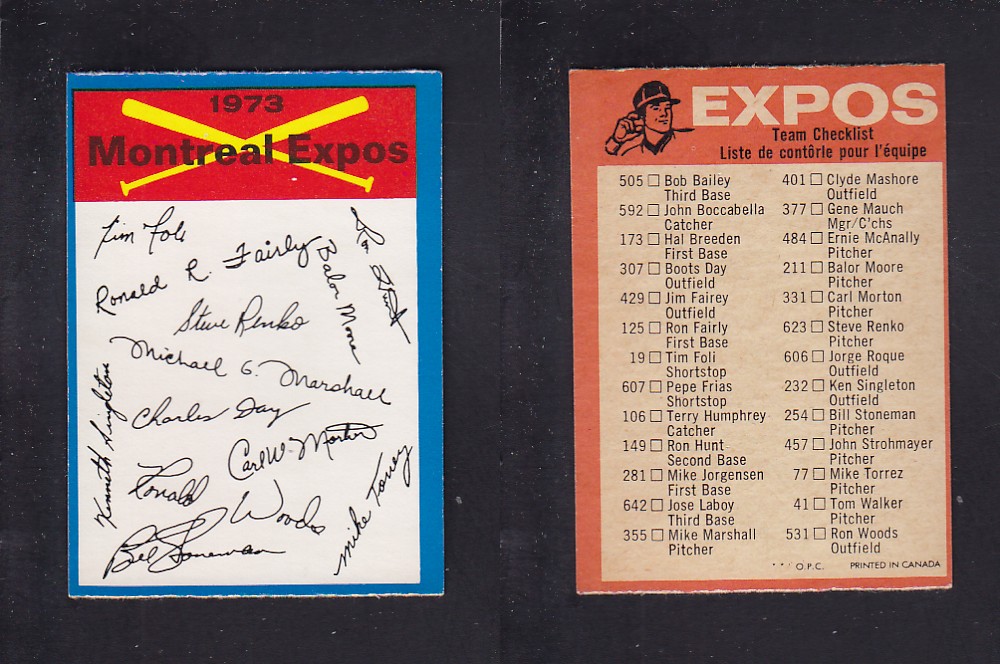 1973
Montreal Expos
Tim Foli
Ronald R. Fairly
Balor Moore
Ron Hunt
Steve Renko
Michael G. Marshall
Kenneth Singleton
Charles Day
Carl W. Morton
Ronald Woods
Mike Torrez
Bill Stoneman
EXPOS
Team Checklist
Liste de contôrle pour l'équipe
505 □ Bob Bailey
Third Base
592 □ John Boccabella
Catcher
173 □ Hal Breeden
First Base
307 □ Boots Day
Outfield
429 □ Jim Fairey
Outfield
125 □ Ron Fairly
First Base
19 □ Tim Foli
Shortstop
607 □ Pepe Frias
Shortstop
106 □ Terry Humphrey
Catcher
149 □ Ron Hunt
Second Base
281 □ Mike Jorgensen
First Base
642 □ Jose Laboy
Third Base
355 □ Mike Marshall
Pitcher
401 □ Clyde Mashore
Outfield
377 □ Gene Mauch
Mgr/C'chs
484 □ Ernie McAnally
Pitcher
211 □ Balor Moore
Pitcher
331 □ Carl Morton
Pitcher
623 □ Steve Renko
Pitcher
606 □ Jorge Roque
Outfield
232 □ Ken Singleton
Outfield
254 □ Bill Stoneman
Pitcher
457 □ John Strohmayer
Pitcher
77 □ Mike Torrez
Pitcher
41 □ Tom Walker
Pitcher
531 □ Ron Woods
Outfield
O.P.C. PRINTED IN CANADA